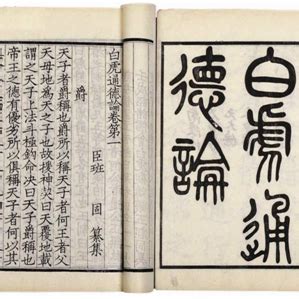 白虎通
德論
白虎通德論卷第一
臣班固纂集
爵
天子者爵稱也爵所以稱天子者何王者父
天母地為天之子也故援神契曰天覆地載
謂之天子上法斗極鉤命決曰天子爵稱也
帝王之德有優劣所以俱稱天子者何以其